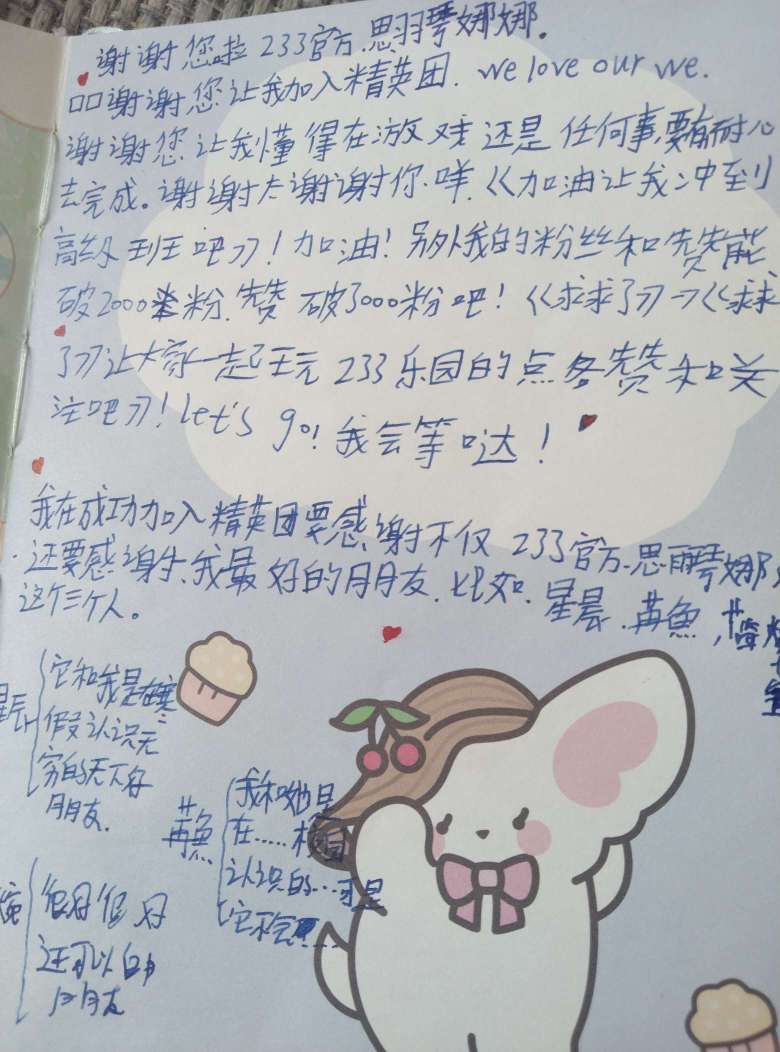 谢谢您啦233官方.思羽琴娜娜.
口口谢谢您让我加入精英团. we love our we.
谢谢您让我懂得在游戏还是任何事,要有耐心
去完成。谢谢太谢谢你.咩.《加油让我冲到
高级班吧》!加油!另外我的粉丝和赞能
破2000粉.赞破3000粉吧!《求求了》→《求求
了》让大家一起玩233乐园的点各赞和关
注吧》!Let's go!我会等哒!
我在成功加入精英团要感谢不仅233官方.思雨琴娜
.还要感谢、我最好的朋友.比如.星晨.苒鱼,
这个三个人。
它和我是在寒
假认识无
穷的天下好
朋友.
苒鱼
我和她是
在.....
认识的...可是
它不会
很好很好
还可以的
朋友